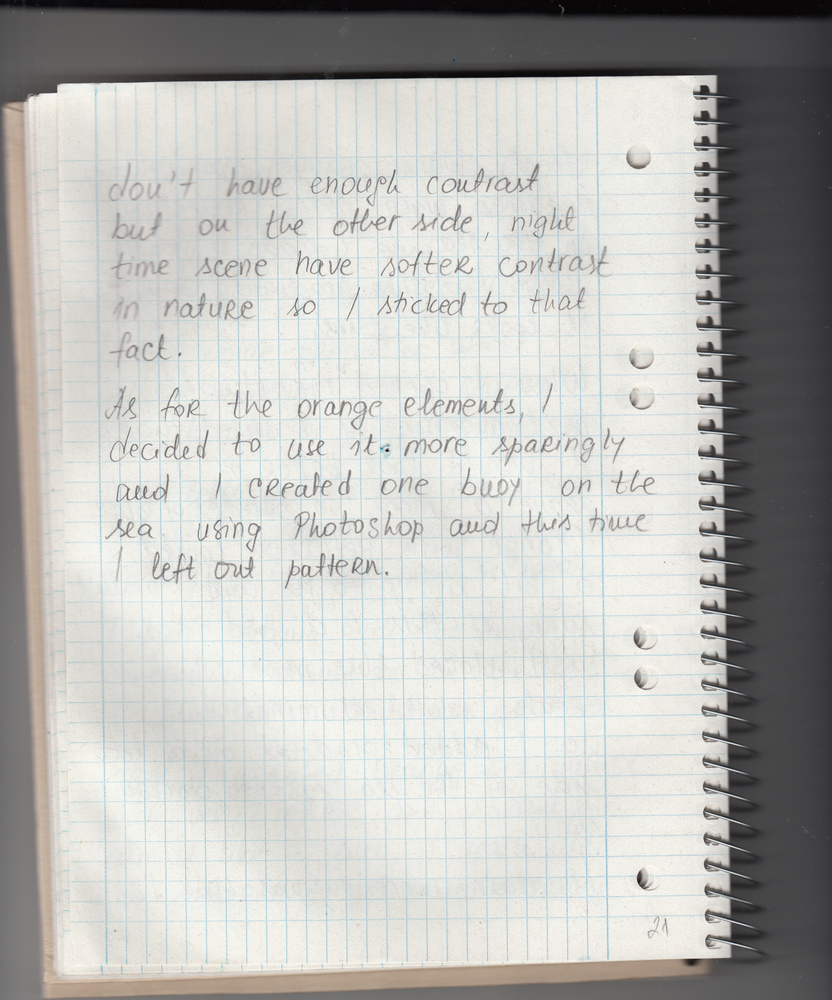 don't have enough contrast
but on the other side, night
time scene have softer contrast
in nature so I sticked to that
fact.
As for the orange elements, I
decided to use it. more sparingly
and I created one buoy on the
sea using Photoshop and this time
I left out pattern.
21